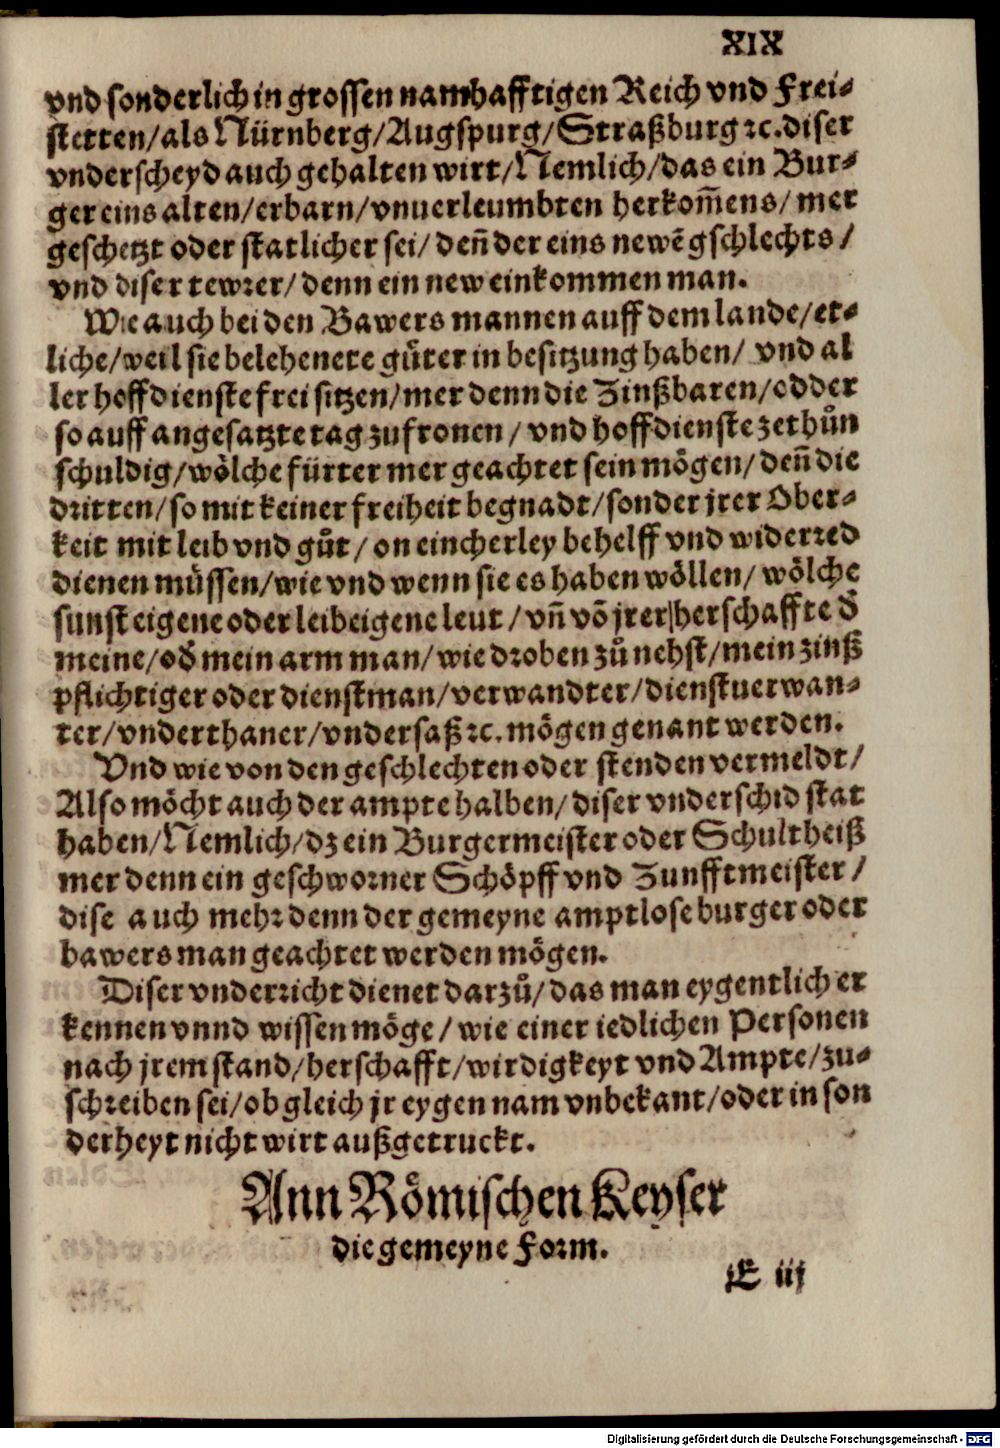 XIX
vnd sonderlich in grossen namhafftigen Reich vnd Frei⸗
stetten/als Nürnberg/Augspurg/Straßburg ꝛc.diser
vnderscheyd auch gehalten wirt/Nemlich/das ein Bur⸗
ger eins alten/erbarn/vnuerleumbten herkom̅ens/ mer
geschetzt oder statlicher sei/ den̅ der eins newē gschlechts /
vnd diser tewrer/ denn ein new einkommen man.
Wie auch bei den Bawers mannen auff dem lande/et⸗
liche/weil sie belehenete gůter in besitzung haben/ vnd al
ler hoffdienste frei sitzen/mer denn die Zinßbaren/odder
so auff angesatzte tag zufronen / vnd hoffdienste zethůn
schuldig/wölche fürter mer geachtet sein mögen/den̅ die
dritten/so mit keiner freiheit begnadt/sonder jrer Ober⸗
keit mit leib vnd gůt/ on eincherley behelff vnd widerred
dienen müssen/wie vnd wenn sie es haben wöllen/ wölche
sunst eigene oder leibeigene leut / vn̅ võ jrer herschaffte d̕
meine/od̕ mein arm man/wie droben zů nehst/mein zinß
pflichtiger oder dienstman/verwandter/dienstuerwan⸗
ter/vnderthaner/vndersaß ꝛc. mögen genant werden.
Vnd wie von den geschlechten oder stenden vermeldt/
Also möcht auch der ampte halben/diser vnderschid stat
haben/Nemlich/dz ein Burgermeister oder Schultheiß
mer denn ein geschworner Schöpff vnd Zunfftmeister /
dise auch mehr denn der gemeyne amptlose burger oder
bawersman geachtet werden mögen.
Diser vnderricht dienet darzů/das man eygentlich er
kennen vnnd wissen möge/wie einer iedlichen Personen
nach jrem stand/herschafft/wirdigkeyt vnd Ampte/zu⸗
schreiben sei/ob gleich jr eygen nam vnbekant/oder in son
derheyt nicht wirt außgetruckt.
Ann Römischen Keyser
die gemeyne Form.
E iij
Digitalisierung gefördert durch die Deutsche Forschungsgemeinschaft - DFG